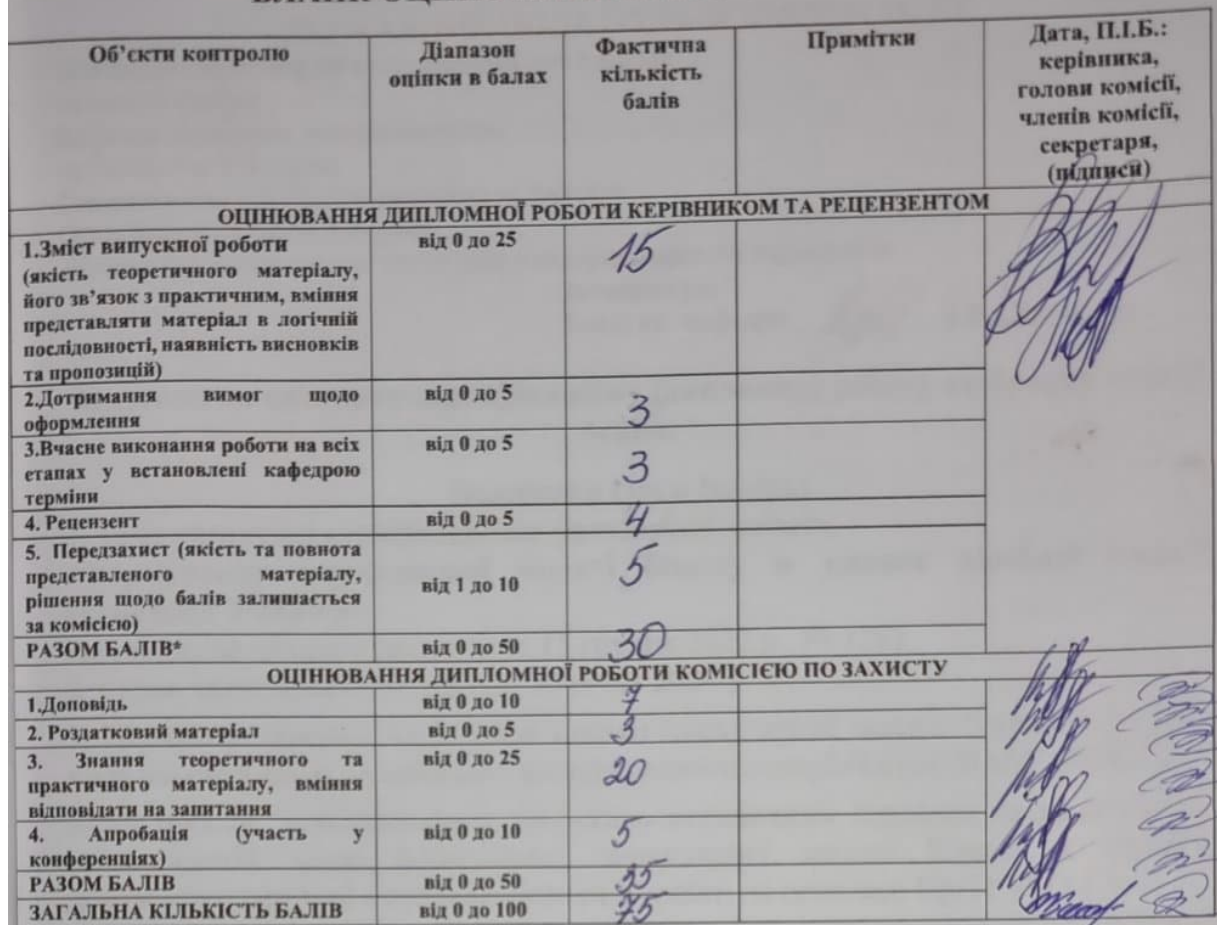 Об’єкти контролю
Діапазон
оцінки в балах
Фактична
кількість
балів
Примітки
Дата, П.І.Б.:
керівника,
голови комісії,
членів комісії,
секретаря,
(підписи)
ОЦІНЮВАННЯ ДИПЛОМНОЇ РОБОТИ КЕРІВНИКОМ ТА РЕЦЕНЗЕНТОМ
1.Зміст випускної роботи
(якість теоретичного матеріалу,
його зв’язок з практичним, вміння
представляти матеріал в логічній
послідовності, наявність висновків
та пропозицій)
від 0 до 25
15
2.Дотримання вимог щодо
оформлення
від 0 до 5
3
3.Вчасне виконання роботи на всіх
етапах у встановлені кафедрою
терміни
від 0 до 5
3
4. Рецензент
від 0 до 5
4
5. Передзахист (якість та повнота
представленого матеріалу,
рішення щодо балів залишається
за комісією)
від 1 до 10
5
РАЗОМ БАЛІВ*
від 0 до 50
30
ОЦІНЮВАННЯ ДИПЛОМНОЇ РОБОТИ КОМІСІЄЮ ПО ЗАХИСТУ
1.Доповідь
від 0 до 10
7
2. Роздатковий матеріал
від 0 до 5
3
3. Знання теоретичного та
практичного матеріалу, вміння
відповідати на запитання
від 0 до 25
20
4. Апробація (участь у
конференціях)
від 0 до 10
5
РАЗОМ БАЛІВ
від 0 до 50
35
ЗАГАЛЬНА КІЛЬКІСТЬ БАЛІВ
від 0 до 100
75